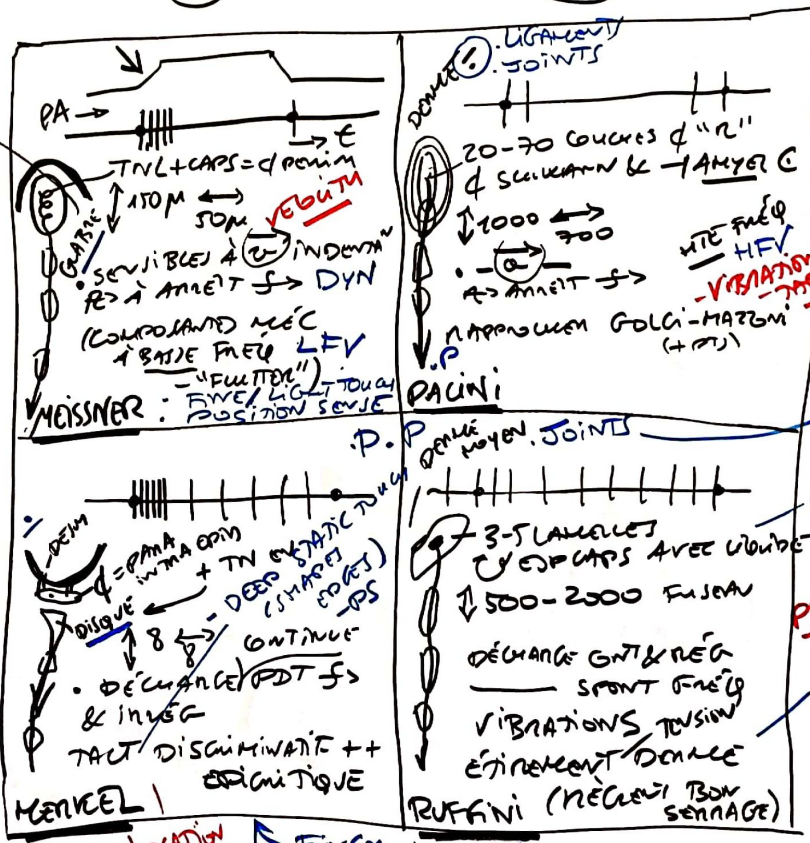 PA →
→ t
TNL + CAPS = ¢ PERIM
150µ
50µ
VELOCITY
GLABRE
. SENSIBLES À INDENTAº
À ARRÊT DYN
(COMPOSANTES MÉC
À BASSE FRÉQ LFV
- "FLUTTER")
MEISSNER : FINE/LIGHT TOUCH
POSITION SENSE
DERME
. LIGAMENTS
. JOINTS
20-70 COUCHES ¢ "R"
¢ SCHWANN & AMYEL
1000
700
HTE FRÉQ
HFV
- VIBRATION
ARRÊT
RAPPROCHER GOLGI-MAZZONI
(+ PTS)
.P
PACINI
.P.P
DERM
¢ = PARA
INTRA EPID
+ TN
DISQUE
8
8
- DEEP STATIC TOUCH
(SHAPES
EDGES)
- PS
CONTINUE
. DÉCHARGE PDT
& IRRÉG
TACT DISCRIMINATIF ++
EPICRITIQUE
MERKEL
DERME MOYEN . JOINTS
3-5 LAMELLES
ESP CAPS AVEC LIQUIDE
500-2000 FUSEAU
DÉCHARGE CONT & RÉG
SPONT FRÉQ
VIBRATIONS TENSION
ÉTIREMENT/DERME
RUFFINI (RÈGLENT BON
SERRAGE)